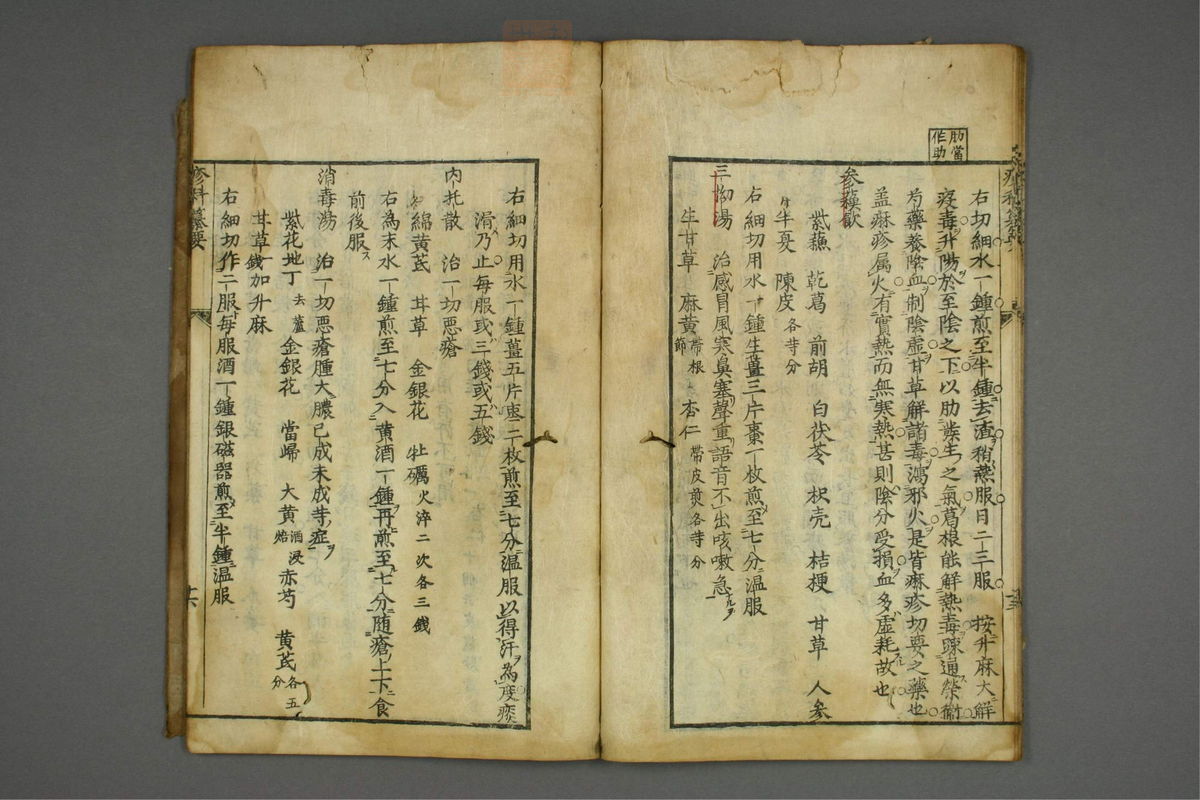 肋當
作助
右切細水一鍾煎至半鍾去渣稍熱服日二三服 按升麻大解
疫毒升陽於至陰之下以肋發生之氣葛根能解熱毒踈通榮衞
芍藥養陰血制陰虛甘草解諸毒瀉邪火是皆痳疹切要之藥也
盖痳疹属火有實熱而無寒熱甚則陰分受損血多虛耗故也
参蘓飲
紫蘓 乾葛 前胡 白茯苓 枳壳 桔梗 甘草 人参
半夏 陳皮各等分
右細切用水一鍾生薑三片棗一枚煎至七分温服
三拗湯 治感冒風寒鼻塞聲重語音不出咳嗽急
生甘草 麻黄帶根節 杏仁帶皮煎各等分
右細切用水一鍾薑五片棗二枚煎至七分温服以得汗為度痰
滑乃止每服或三錢或五錢
内托散 治一切悪瘡
綿黄芪 甘草 金銀花 牡礪火淬二次各三錢
右為末水一鍾煎至七分入黄酒一鍾再煎至七分随瘡上下食
前後服
消毒湯 治一切悪瘡腫大膿已成未成等症
紫花地丁去蘆 金銀花 當歸 大黄酒浸焙 赤芍 黄芪各五分
甘草一錢加升麻
右細切作二服每服酒一鍾銀磁器煎至半鍾温服
疹科纂要
十六